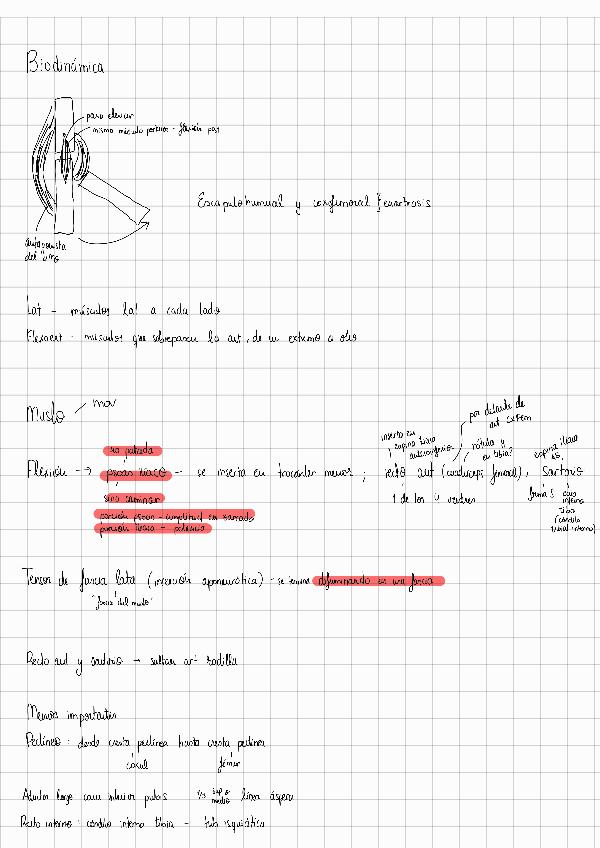 Biodinámica
para elevar
mismo músculo porterior - flexión post
antagonista
del
Escapulohumual y coxfemoral } enartrosis
Lat - músculos lat a cada lado
Flexoext - músculos que sobrepasan la art, de un extremo a otro
Muslo / mov
no patada
Flexión → psoas iliaco - se inserta en trocanter menor ; recto ant (cuadriceps femoral), Sartorio
sino caminar
porción psoas - amplitud en zancada
porción iliaca - potencia
inserta en
espina iliaca
anteroinferior
por delante de
art coxfem
rótula y
en tibia?
espina iliaca
1 de los 4 vientres
forma S
cara
interna
tibia
(cóndilo
tibial interno)
Tensor de fascia lata (inserción aponeurótica) - se termina difuminando en una fascia
"fascia del muslo"
Recto ant y sartorio → saltan art rodilla
Menos importantes
Pectíneo : desde cresta pectínea hasta cresta pectínea
coxal
fémur
Aductor largo cara inferior pubis 1/3 sup o medio línea áspera
Recto interno : cóndilo interno tibia - tub isquiática